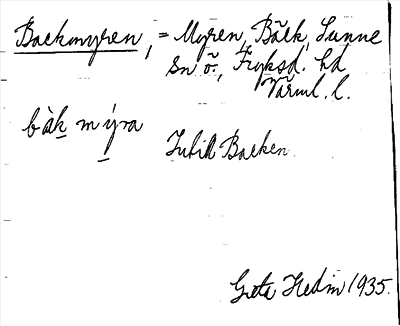 Backmyren, = Myren, Bäck, Sunne
sn ö., Fryksd. hd
Värml. l.
bàk mýra
Backen
Greta Hedin 1935.